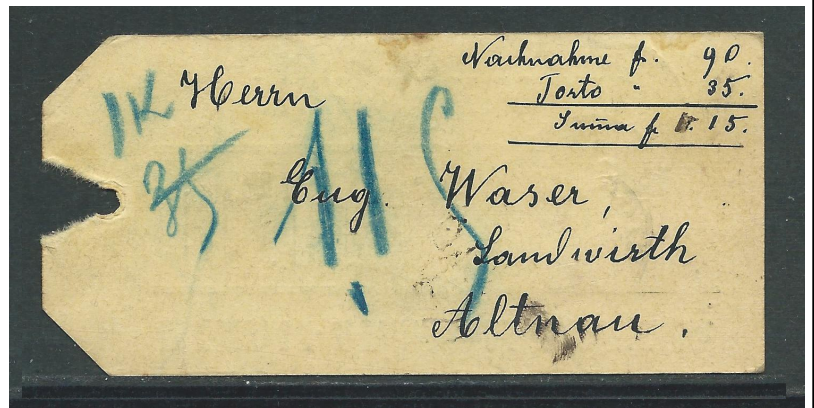 Nachnahme fr. 90.
Porto " 35.
Summa fr 1.15.
Herrn
1K
35
Eug. Waser,
Landwirth
Altnau.